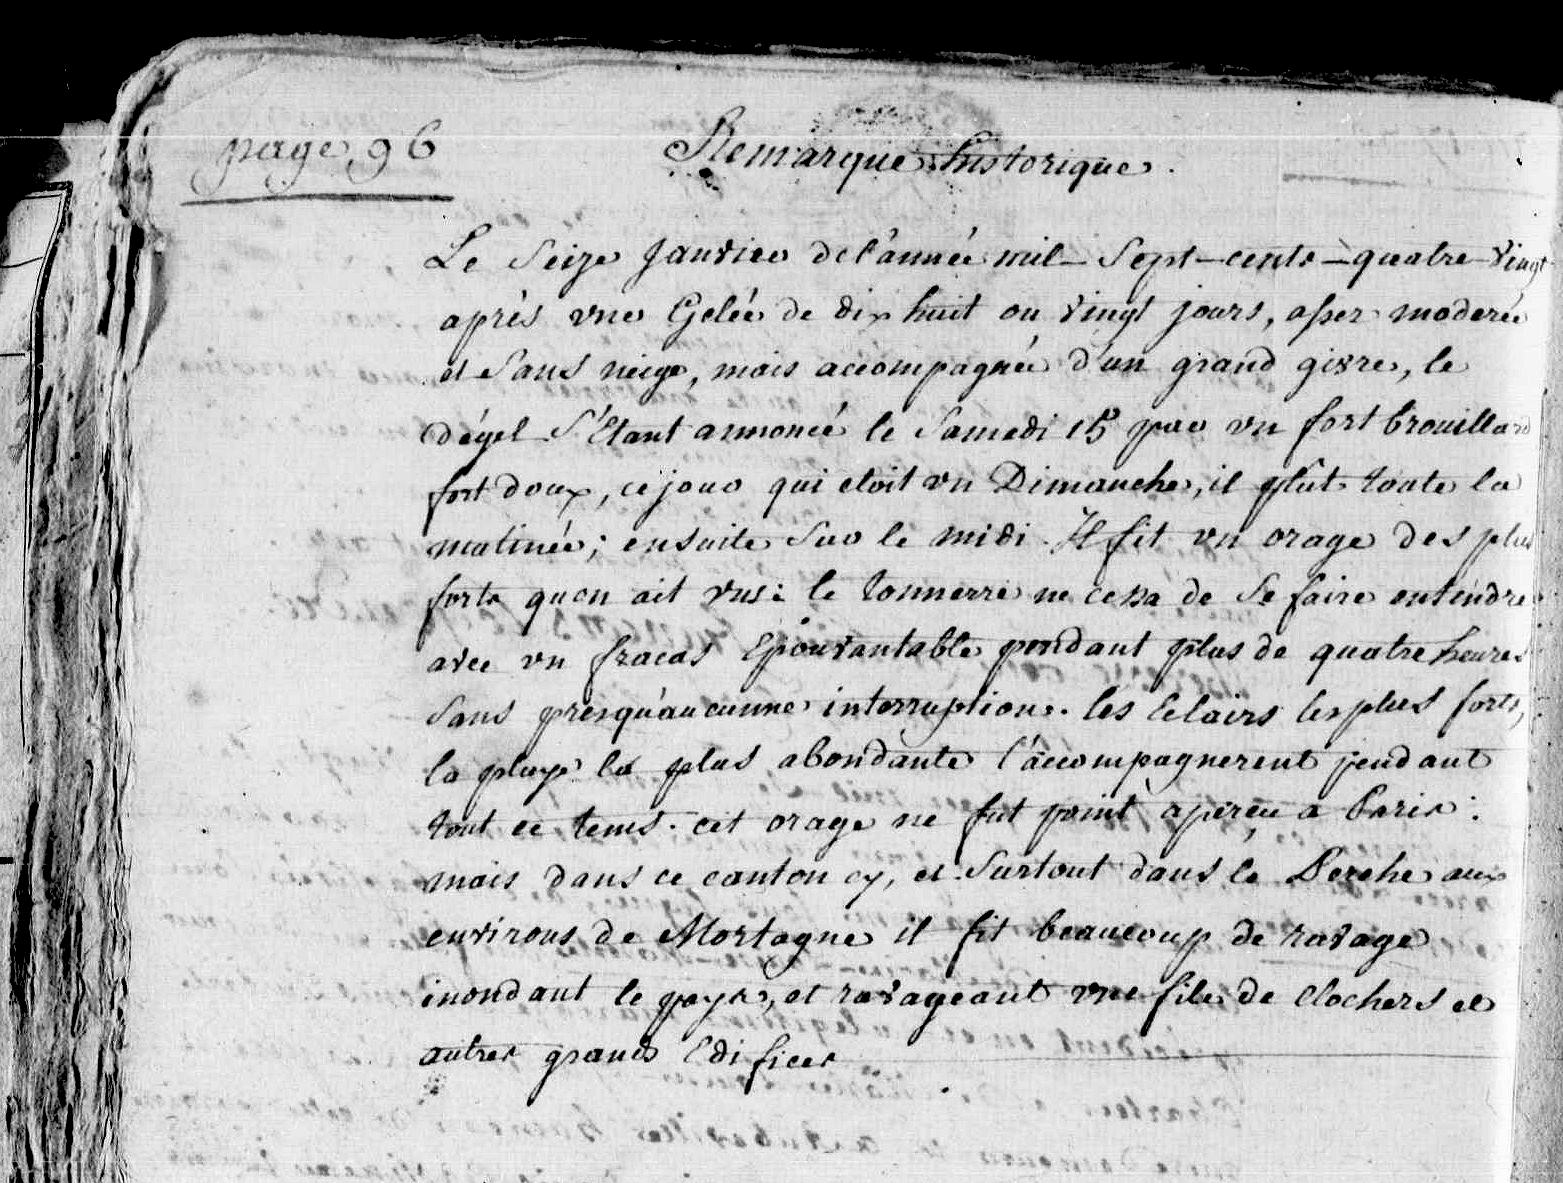 page 96
Remarque historique.
Le Seize Janvier de l'année mil-Sept-cents-quatre-Vingt
après une Gelée de dix huit ou vingt jours, assez moderée
et Sans neige, mais accompagnée d'un grand givre, le
dégel S'Etant annoncé le Samedi 15 par un fort brouillard
fort doux, ce jour qui etoit un Dimanche, il plut toute la
matinée; ensuite Sur le midi Il fit un orage des plus
forts qu'on ait vus: le tonnerre ne cessa de Se faire entendre
avec un fracas Epouvantable pendant plus de quatre heures
Sans presqu'aucunne interruption. les Eclairs les plus forts,
la pluye la plus abondante l'accompagnerent pendant
tout ce tems. cet orage ne fut point aperçu a Paris:
mais dans ce canton cy, et Surtout dans le Perche aux
environs de Mortagne il fit beaucoup de ravage
inondant le pays, et ravageant une file de Clochers et
autres grands Edifices